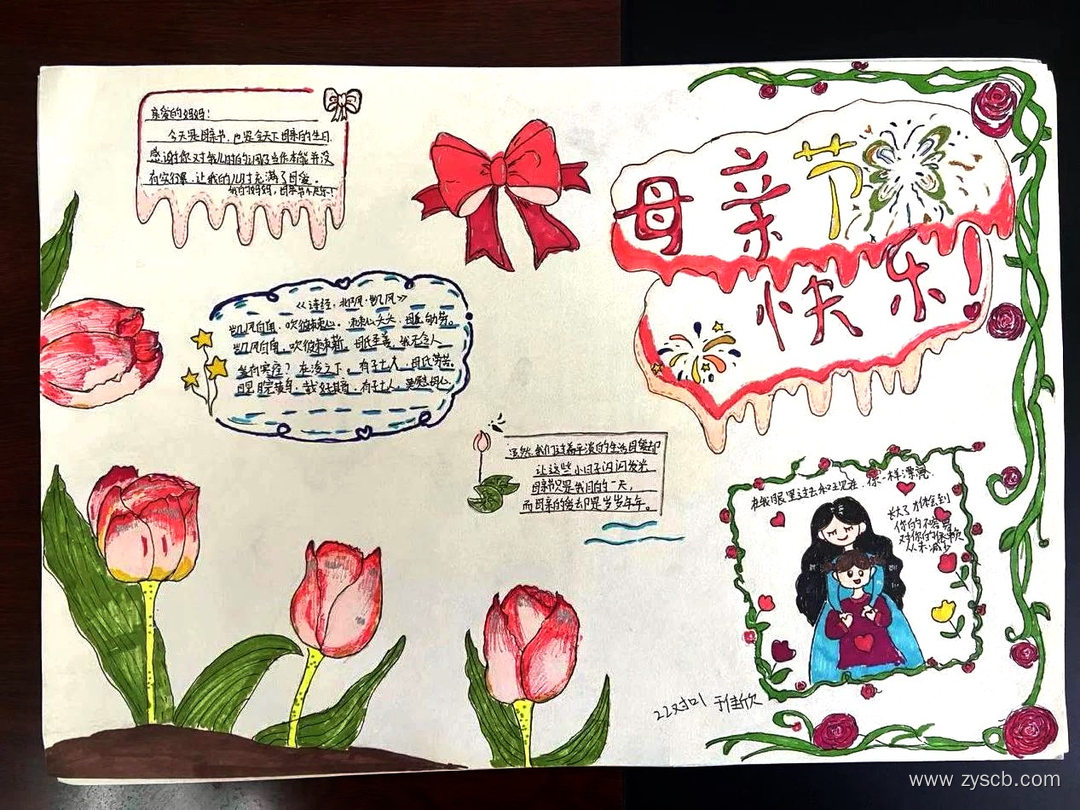 亲爱的妈妈：
今天是母亲节，也是全天下母亲的生日
感谢你对我儿时的
让我的儿时充满了母爱。
我的妈妈，母亲节快乐！
母亲节
快乐！
《诗经·邶风·凯风》
凯风自南，吹彼棘心。棘心夭夭，母氏劬劳。
凯风自南，吹彼棘薪。母氏圣善，我无令人
爰有寒泉？在浚之下。有子七人，母氏劳苦。
睍睆黄鸟，载好其音。有子七人，莫慰母心
当然，我们过着平淡的生活，母爱却
让这些小日子闪闪发光
母亲节只是我月的一天，
而母亲的爱却是岁岁年年。
在我眼里过去和现在，你一样漂亮
长大了才体会到
你的不容易
对你的依赖
从未减少
22对口 于佳欣
www.zyscb.com